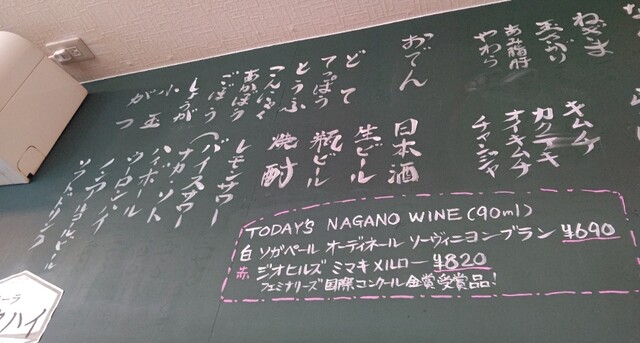 ねぎま
あ脂肝
やわら
おでん
どて
てっぽう
とうふ
こんにゃく
ごぼう
しょうが
小玉
がつ
キムチ
カクテキ
オイキムチ
チャンジャ
日本酒
生ビール
瓶ビール
焼酎
レモンサワー
(バイスサワー
ナカ・ソト
ハイボール
ウーロンハイ
ノンアルコールビール
ソフトドリンク
TODAYS NAGANO WINE (90ml)
白 ソガペール オーディネール ソーヴィニヨンブラン ¥690
赤 ジオヒルズ ミマキメルロー ¥820
フェミナリーズ国際コンクール金賞受賞品!
ーラ
ハイ